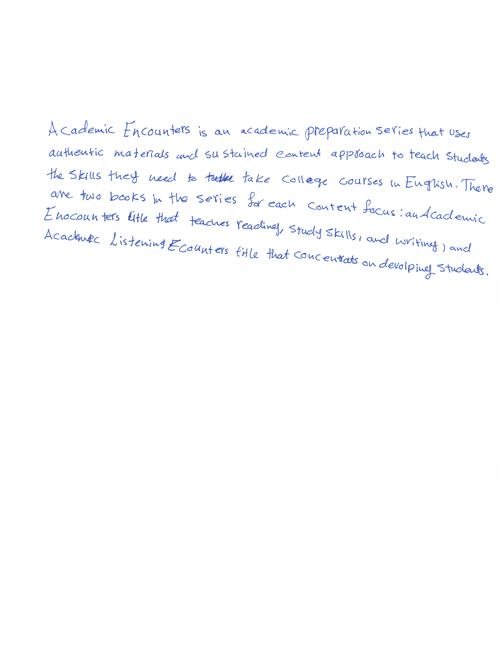 Academic Encounters is an academic preparation series that uses
authentic materials and sustained content approach to teach students
the skills they need to take college courses in English. There
are two books in the series for each content focus: an Academic
Enocounters title that teaches reading, study skills, and writing, and
Academic Listening Ecounters title that concentrats on devolping students.